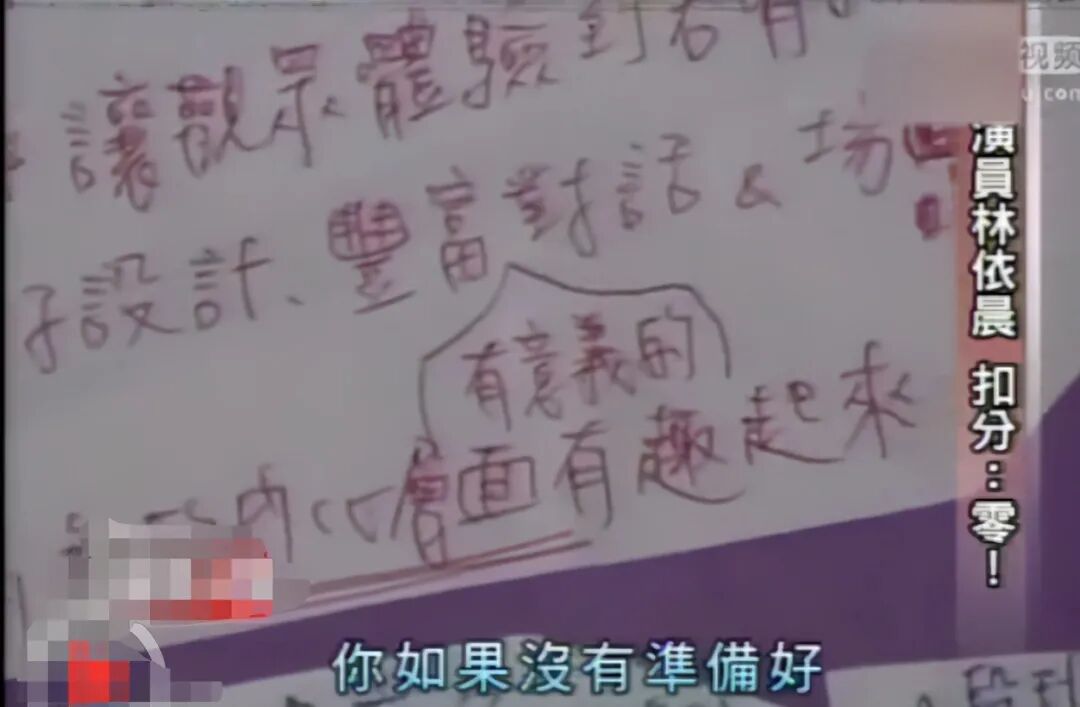 讓觀眾體驗到若有
视频
u.com
子設計、豐富對話 & 場
有意義的
層面有趣起來
演員林依晨 扣分：零！
你如果沒有準備好